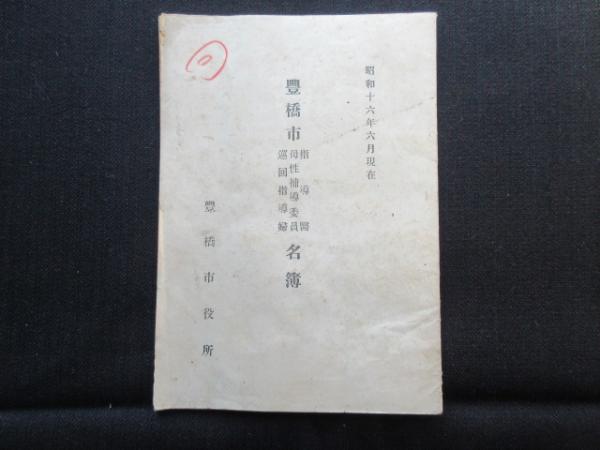 昭和十六年六月現在
豐橋市
指導醫
母性補導委員
巡回指導婦
名簿
豐橋市役所